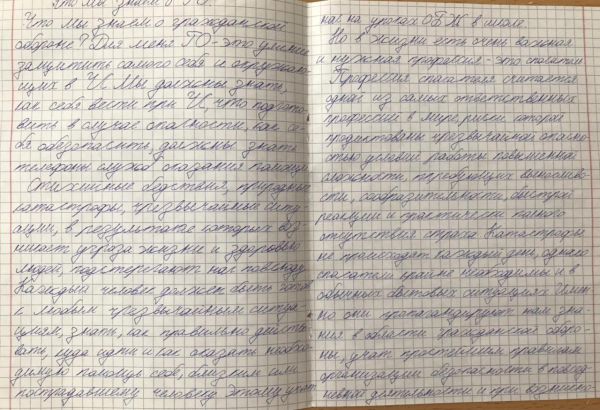 Что мы знаем о ГО.
Что мы знаем о гражданской
обороне? Для меня ГО-это умение
защитить самого себя и окружаю-
щих в ЧС. Мы должны знать,
как себя вести при ЧС, что подгото-
вить в случае опасности, как се-
бя обезопасить, должны знать
телефоны служб оказания помощи.
Стихийные бедствия, природные
катастрофы, чрезвычайные ситу-
ации, в результате которых воз-
никает угроза жизни и здоровью
людей, подстерегают нас повсюду.
Каждый человек должен быть готов
к любым чрезвычайным ситуа-
циям, знать, как правильно действо-
вать, куда идти и как оказать необхо-
димую помощь себе, близким или
пострадавшему человеку. Этому учат
нас на уроках ОБЖ в школе.
Но в жизни есть очень важная
и нужная профессия - это спасатель.
Профессия спасателя считается
одной из самых ответственных
профессий в мире, риски которой
продиктованы чрезвычайной опасно-
стью условий работы повышенной
сложности, требующих выносливо-
сти, сообразительности, быстрой
реакции и практически полного
отсутствия страха. Катастрофы
не происходят каждый день, однако
спасатели крайне необходимы и в
обычных бытовых ситуациях. Имен-
но они пропагандируют нам зна-
ния в области гражданской оборо-
ны, учат простейшим правилам
организации безопасности в повсед-
невной деятельности и при возникно-